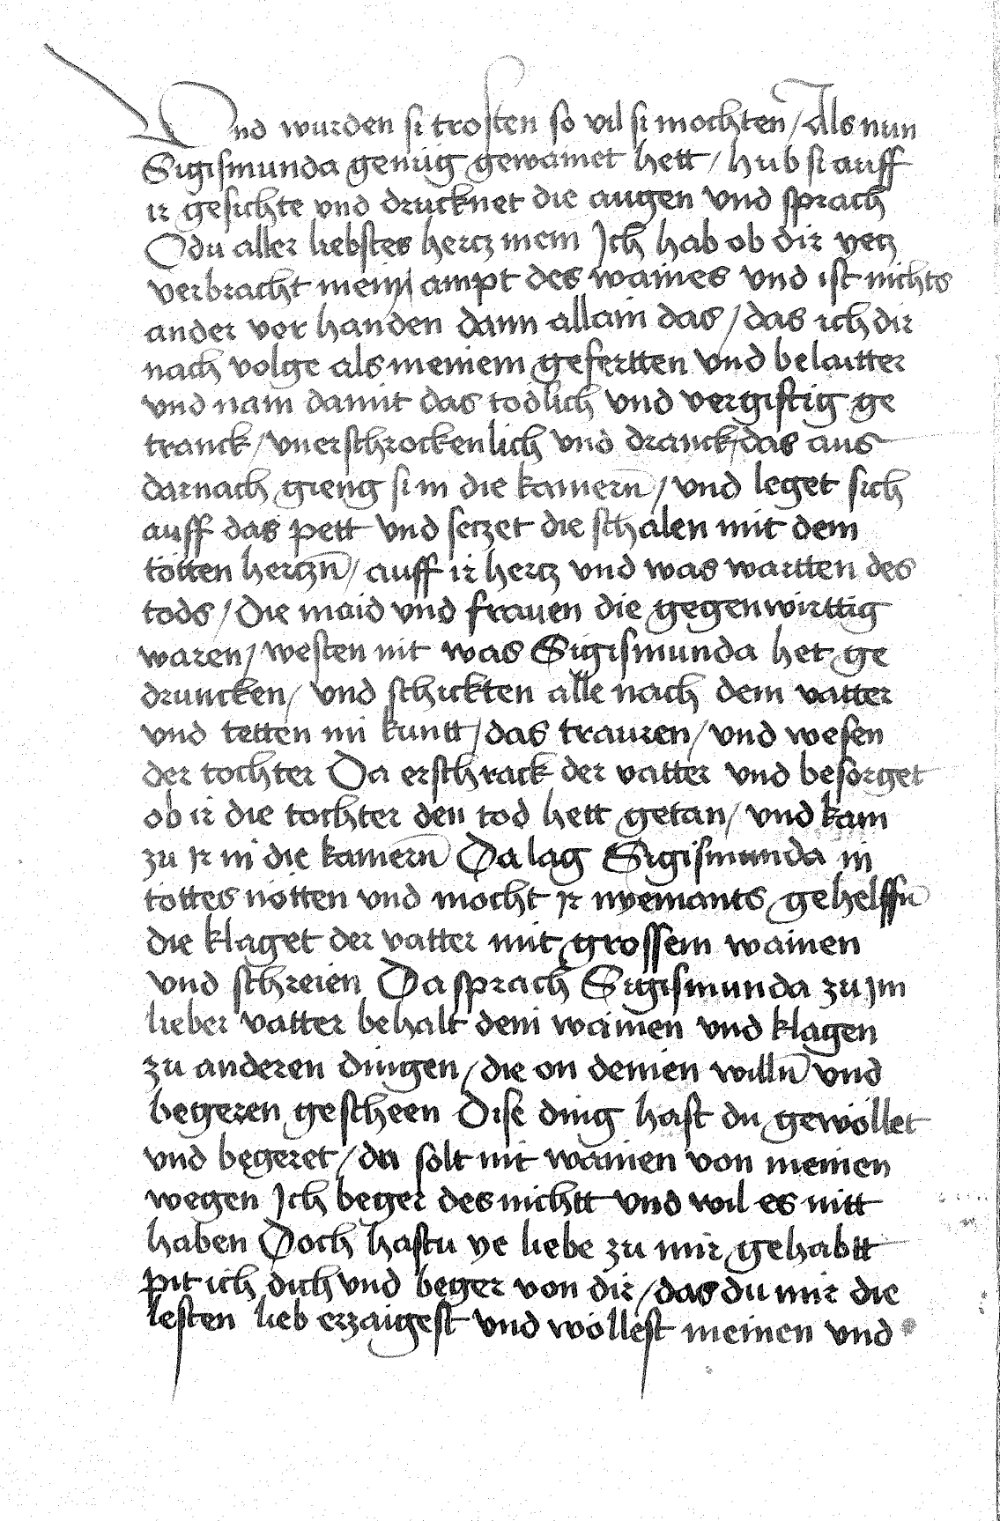 Vnd wurden si trosten so vil si mochten / Als nun
Sigismunda genug gewainet hett / hub si auff
ir gesichte vnd drucknet die augen vnd sprach
O du aller liebstes hercz mein Ich hab ob dir yetz
verbracht mein ampt des waines vnd ist nichts
ander vor handen dann allain das / das ich dir
nach volge als meinem gefertten vnd belaitter
vnd nam damit das todlich vnd vergiftig ge
tranck / vnerschrockenlich vnd dranck das aus
darnach gieng si in die kamern̄ / vnd leget sich
auff das pett vnd seczet die schalen mit dem
totten herczn̄ / auff ir hercz vnd was wartten des
tods / Die maid vnd frauen die gegenwirttig
waren / westen nit was Sigismunda het ge
druncken / vnd schickten alle nach dem vatter
vnd tetten im kuntt / das trauren / vnd wesen
der tochter Da erschrack der vatter vnd besorget
ob ir die tochter den tod hett getan / vnd kam
zu Ir in die kamern̄ Da lag Sigismunda in
tottes nötten vnd mocht Ir nyemants gehelffn̄
die klaget der vatter mit grossem wainen
vnd schreien Da sprach Sigismunda zu Im
lieber vatter behalt dein wainen vnd klagen
zu anderen dingen / die on deinen willn̄ vnd
begeren gescheen Dise ding hast du gewöllet
vnd begeret / du solt nit wainen von meinen
wegen Ich beger des nichtt vnd wil es nitt
haben Doch hastu ye liebe zu mir gehabtt
pit ich dich vnd beger von dir / das du mir die
lesten lieb erzaigest vnd wöllest meinen vnd